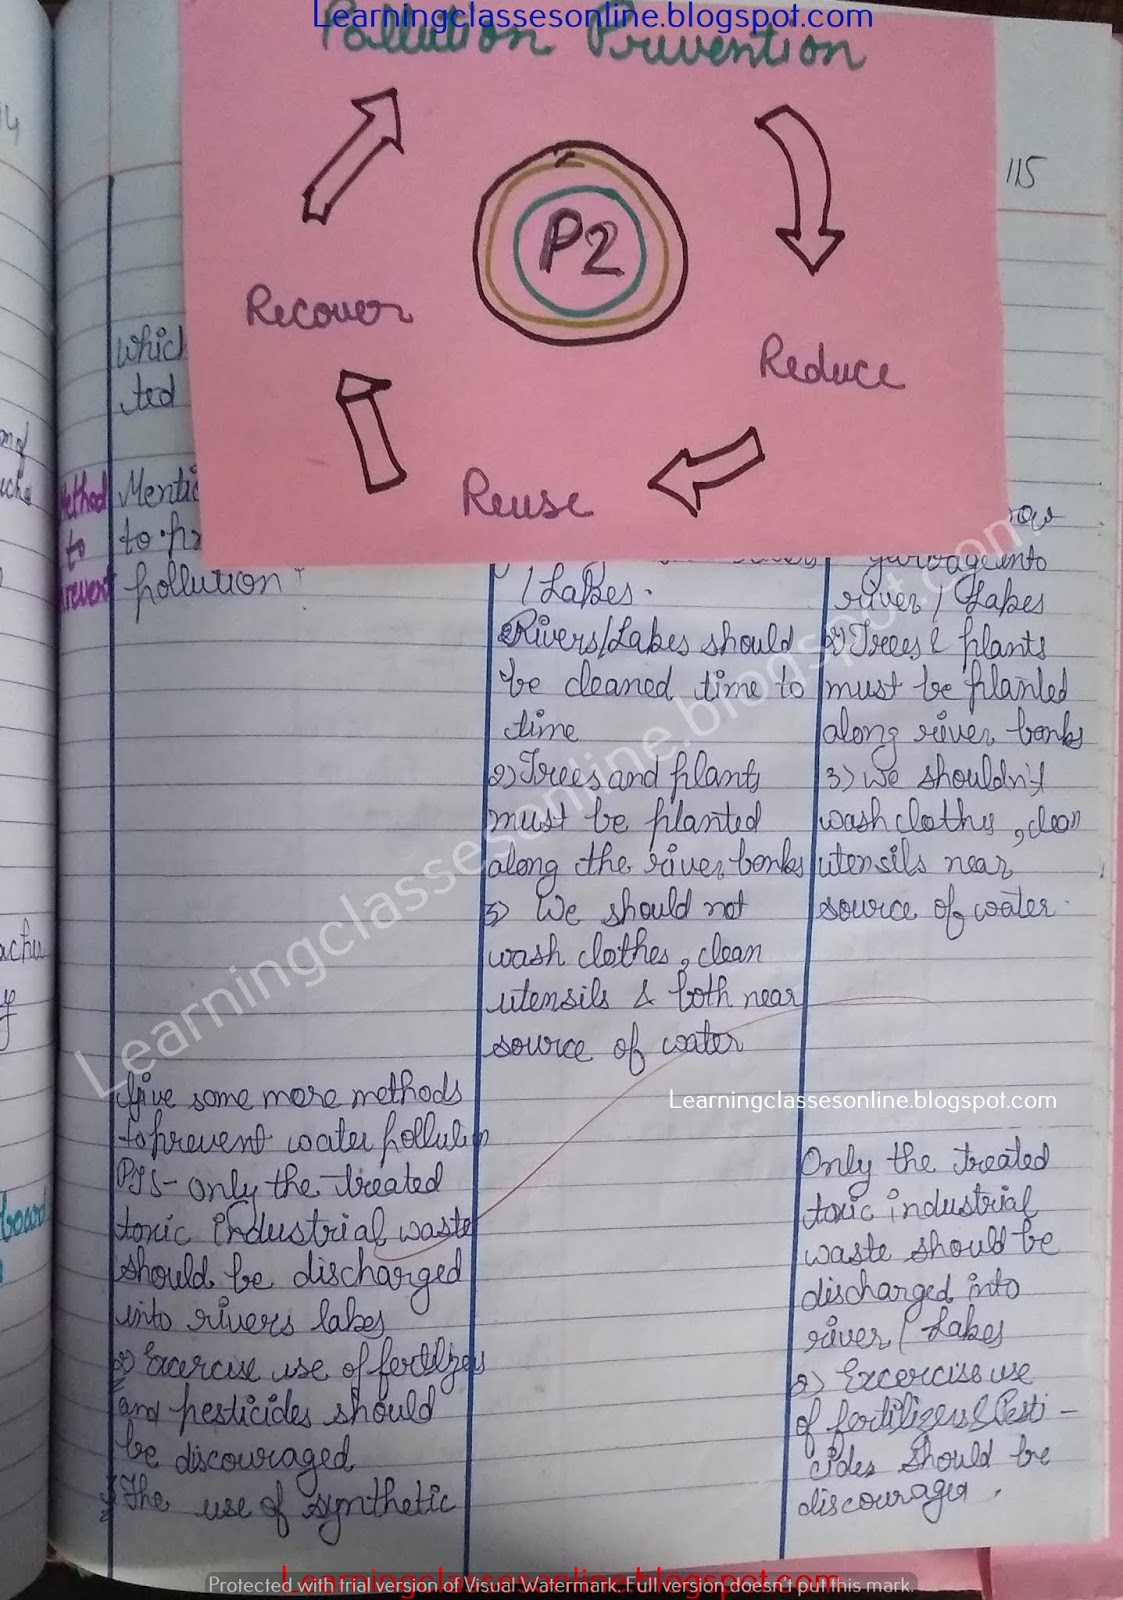 Learningclassesonline.blogspot.com
Pollution Prevention
P2
Recover
Reduce
Reuse
115
which
ted
Method
to
prevent
Mentio
to pr
pollution?
/ Lakes.
2) Rivers/Lakes should
be cleaned time to
time
2) Trees and plants
must be planted
along the river banks
3) We should not
wash clothes, clean
utensils & both near
source of water
row
garbage into
river / Lakes
2) Trees & plants
must be planted
along river banks
3) We shouldn't
wash clothes, clean
utensils near
source of water.
Give some more methods
to prevent water pollution
PTS - only the treated
toxic industrial waste
should be discharged
into rivers lakes
2) Excercise use of fertilizers
and pesticides should
be discouraged
3) The use of synthetic
Only the treated
toxic industrial
waste should be
discharged into
river / Lakes
2) Excercise use
of fertilizers & Pesti -
cides should be
discourager.
board
Learningclassesonline.blogspot.com
Learningclassesonline.blogspot.com
Learningclassesonline.blogspot.com
Protected with trial version of Visual Watermark. Full version doesn't put this mark.